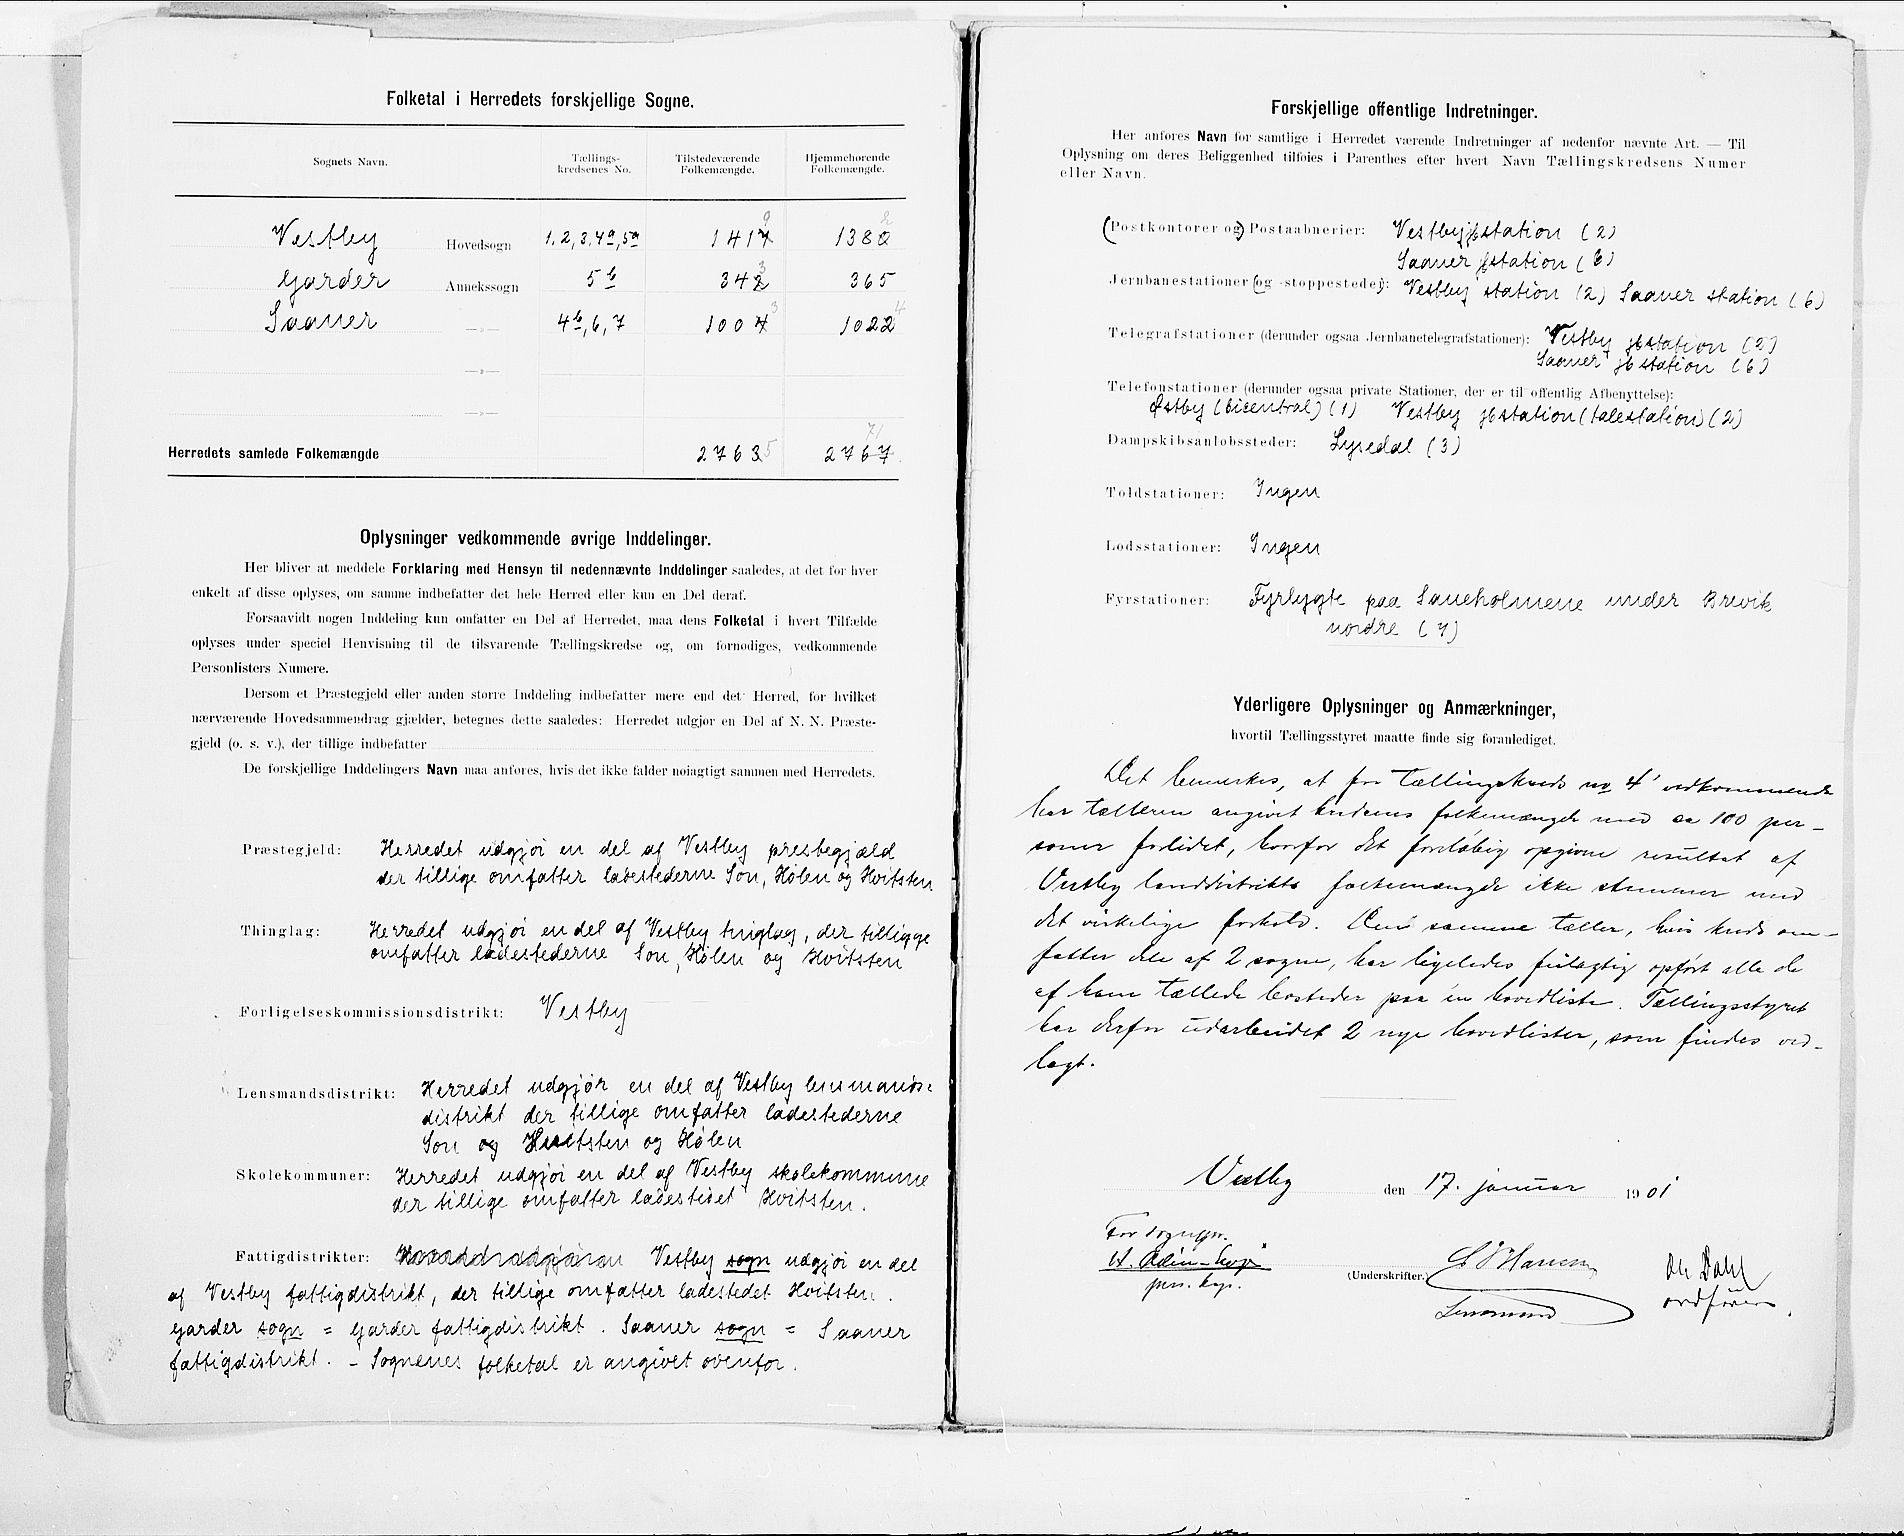 Folketal i Herredets forskjellige Sogne.
Sognets Navn. Tællings-kredsenes No. Tilstedeværende Folkemængde. Hjemmehørende Folkemængde.
Vestby Hovedsogn 1, 2, 3, 4a, 5a 1417 9 1380 2
Garder Annekssogn 5b 342 3 365
Saaner —„— 4b, 6, 7 1004 3 1022 4
—„—
—„—
71
Herredets samlede Folkemængde 2763 5 2767
Oplysninger vedkommende øvrige Inddelinger.
Her bliver at meddele Forklaring med Hensyn til nedennævnte Inddelinger saaledes, at det for hver
enkelt af disse oplyses, om samme indbefatter det hele Herred eller kun en Del deraf.
Forsaavidt nogen Inddeling kun omfatter en Del af Herredet, maa dens Folketal i hvert Tilfælde
oplyses under speciel Henvisning til de tilsvarende Tællingskredse og, om fornødiges, vedkommende
Personlisters Numere.
Dersom et Præstegjeld eller anden større Inddeling indbefatter mere end det Herred, for hvilket
nærværende Hovedsammendrag gjælder, betegnes dette saaledes: Herredet udgjør en Del af N. N. Præste-
gjeld (o. s. v.), der tillige indbefatter
De forskjellige Inddelingers Navn maa anføres, hvis det ikke falder nøiagtigt sammen med Herredets.
Præstegjeld: Herredet udgjør en del af Vestby prestegjæld
der tillige omfatter ladestederne Son, Hølen og Hvitsten
Thinglag: Herredet udgjør en del af Vestby tinglag, der tilligge
omfatter ladestederne Son, Hølen og Hvitsten
Forligelseskommissionsdistrikt: Vestby
Lensmandsdistrikt: Herredet udgjør en del af Vestby lensmands=
distrikt der tillige omfatter ladestederne
Son og Hvitsten og Hølen
Skolekommuner: Herredet udgjør en del af Vestby skolekommune
der tillige omfatter ladestedet Hvitsten.
Fattigdistrikter: Vestby sogn udgjør en del
af Vestby fattigdistrikt, der tillige omfatter ladestedet Hvitsten.
Garder sogn = Garder fattigdistrikt. Saaner sogn = Saaner
fattigdistrikt. – Sognenes folketal er angivet ovenfor.
Forskjellige offentlige Indretninger.
Her anføres Navn for samtlige i Herredet værende Indretninger af nedenfor nævnte Art. — Til
Oplysning om deres Beliggenhed tilføies i Parenthes efter hvert Navn Tællingskredsens Numer
eller Navn.
(Postkontorer og) Postaabnerier: Vestby jbstation (2)
Saaner jbstation (6)
Jernbanestationer (og -stoppesteder): Vestby station (2) Saaner station (6)
Telegrafstationer (derunder ogsaa Jernbanetelegrafstationer): Vestby jbstation (2)
Saaner jbstation (6)
Telefonstationer (derunder ogsaa private Stationer, der er til offentlig Afbenyttelse):
Østby (bicentral) (1) Vestby jbstation (talestation) (2)
Dampskibsanløbssteder: Lysedal (3)
Toldstationer: Ingen
Lodsstationer: Ingen
Fyrstationer: Fyrlygte paa Saueholmene under Brevik
nordre (7)
Yderligere Oplysninger og Anmærkninger,
hvortil Tællingsstyret maatte finde sig foranlediget.
Det bemerkes, at for tællingskreds no 4 vedkommende
har tælleren angivet kredsens folkemængde med ca 100 per-
soner forlidet, hvorfor det foreløbig opgivne resultat af
Vestby landdistrikts folkemængde ikke stemmer med
det virkelige forhold. Den samme tæller, hvis kreds om-
fatter dele af 2 sogne, har ligeledes feilagtig opført alle de
af ham tællede bosteder paa én hovedliste. Tællingsstyret
har derfor udarbeidet 2 nye hovedlister, som findes ved-
lagt.
Vestby den 17. januar 1901
For sognepr.
pers. kap.
(Underskrifter.) Hansen
Lensmand
Ole Dahl
ordfører.